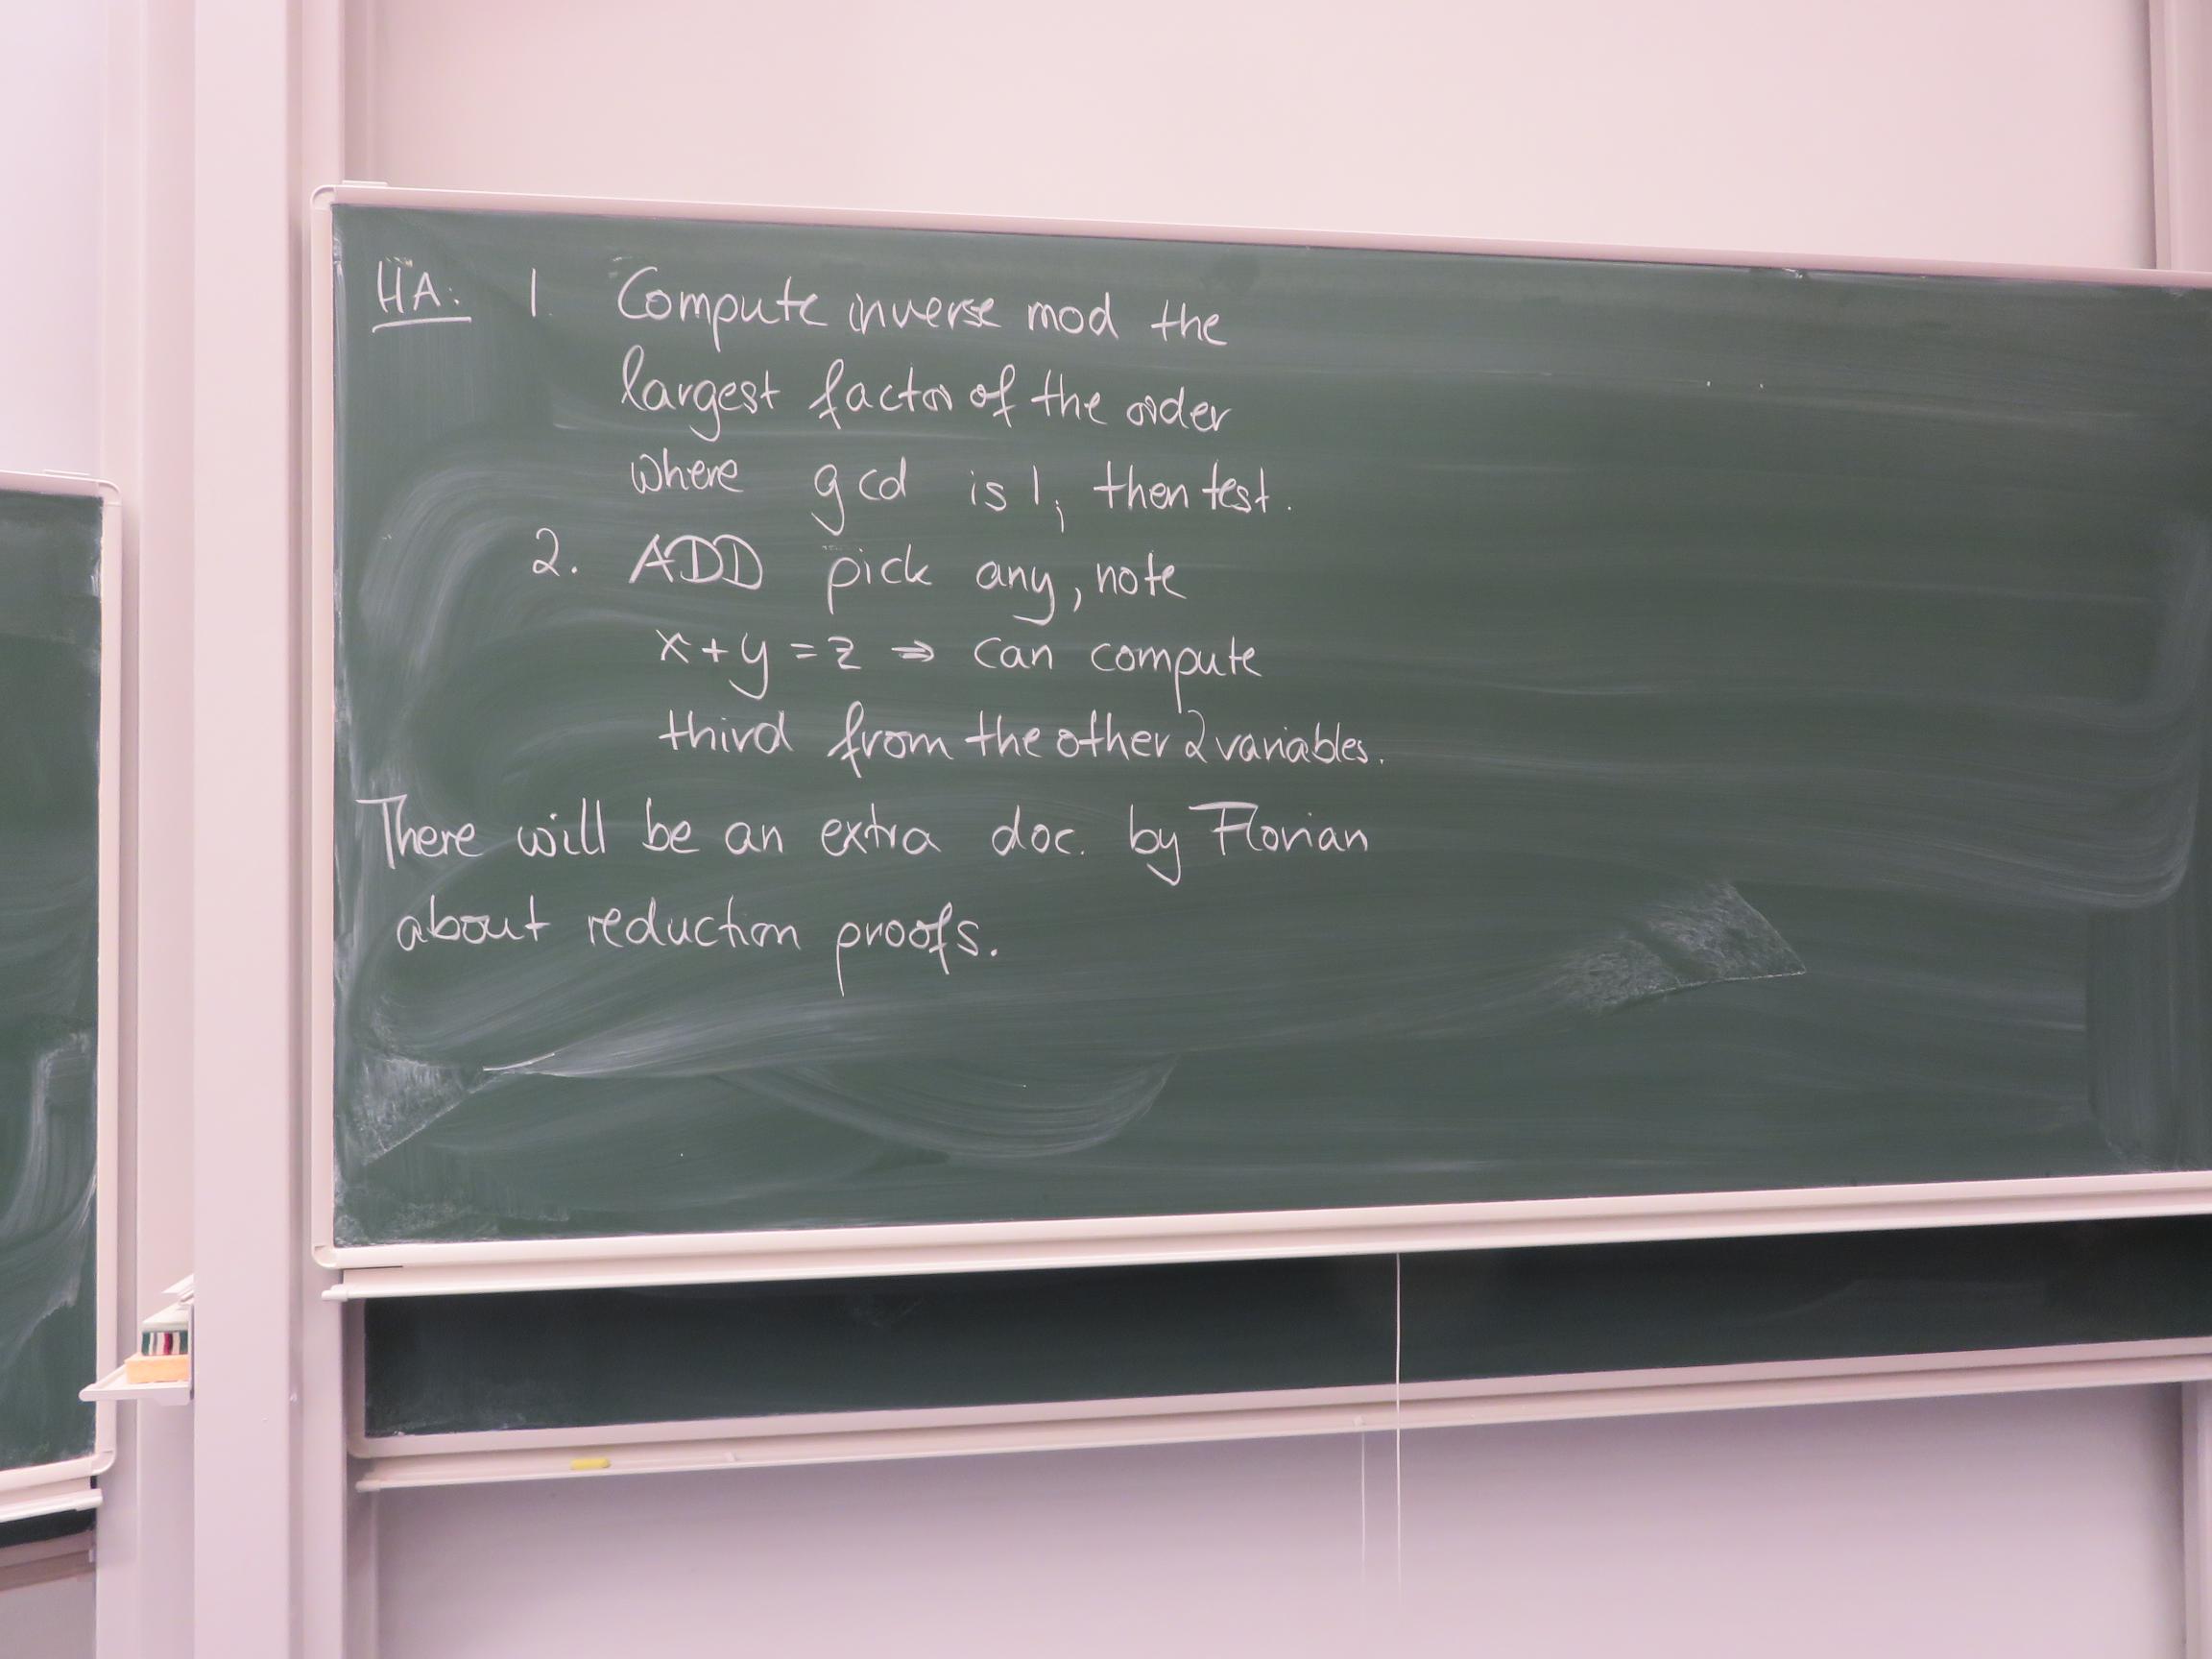 HA: 1. Compute inverse mod the
largest factor of the order
where gcd is 1, then test.
2. ADD pick any, note
x+y=z ⇒ can compute
third from the other 2 variables.
There will be an extra doc. by Florian
about reduction proofs.